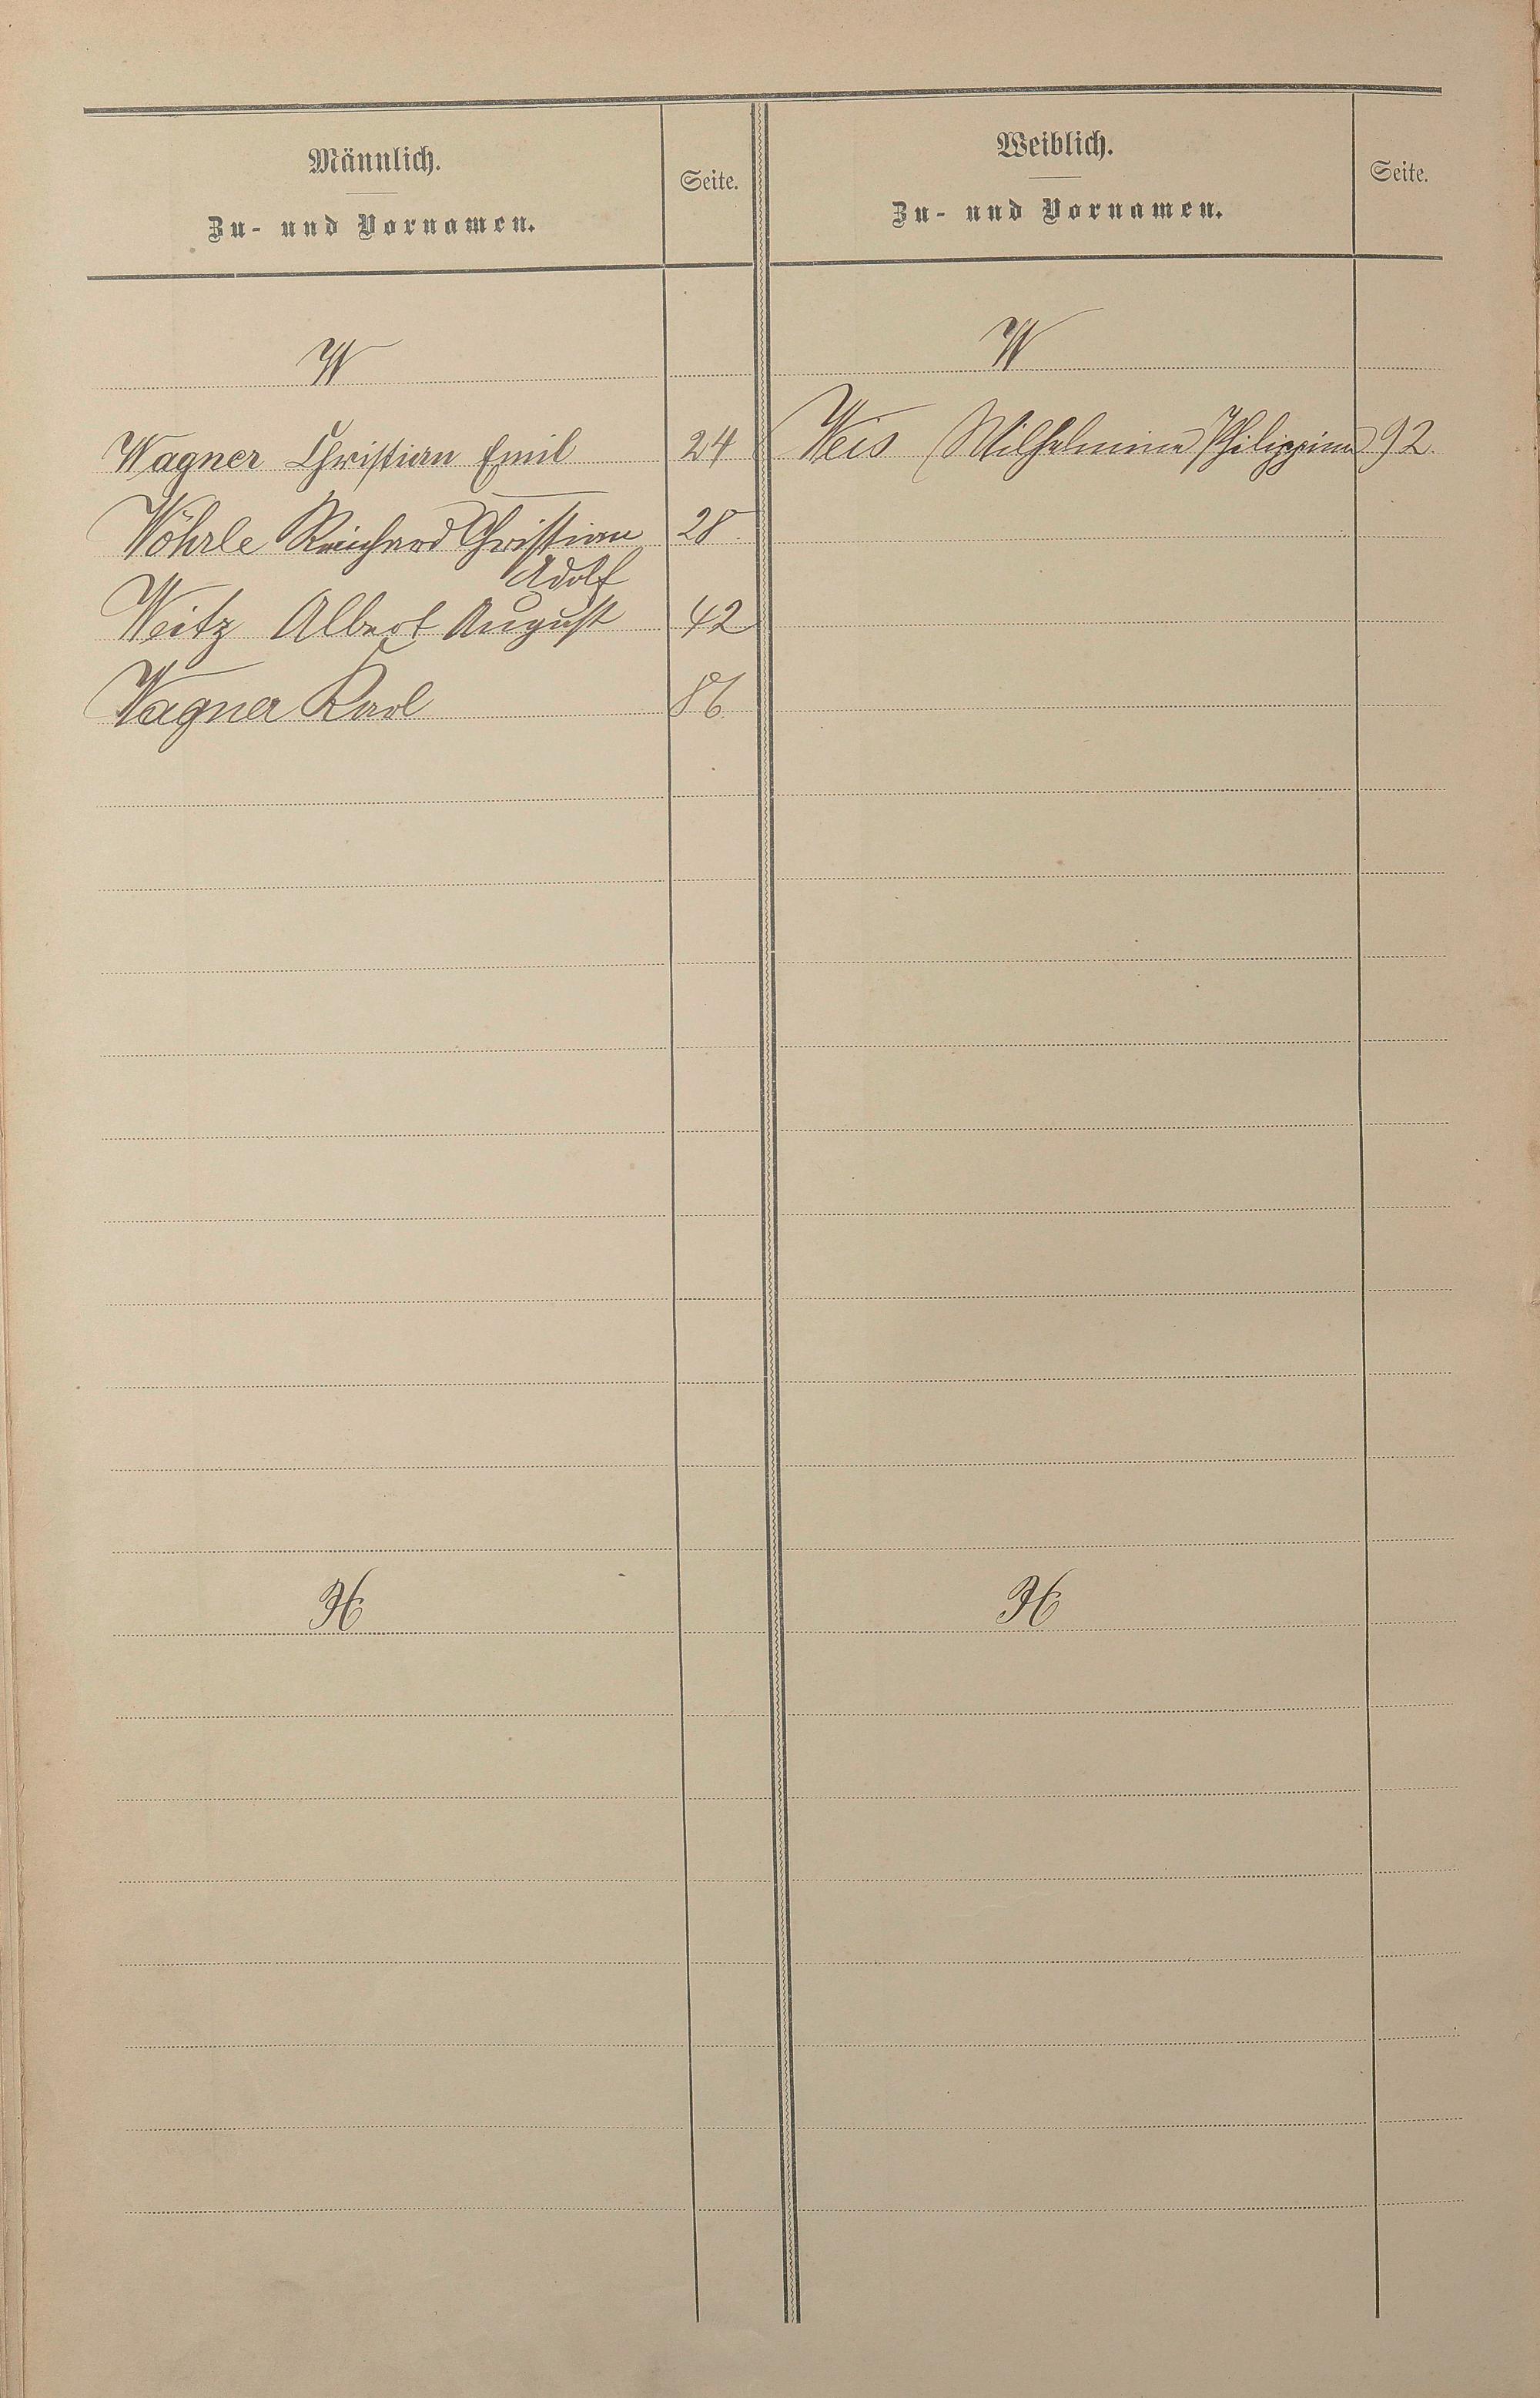 Männlich.
Zu- und Vornamen.
Seite.
Weiblich.
Zu- und Vornamen.
Seite.
W
W
Wagner Christian Emil 24
Weis Wilhelmine Philippine 92.
Wöhrle Reinhard Christian 28.
Adolf
Weitz Albert August 42
Wagner Karl 86.
H
H